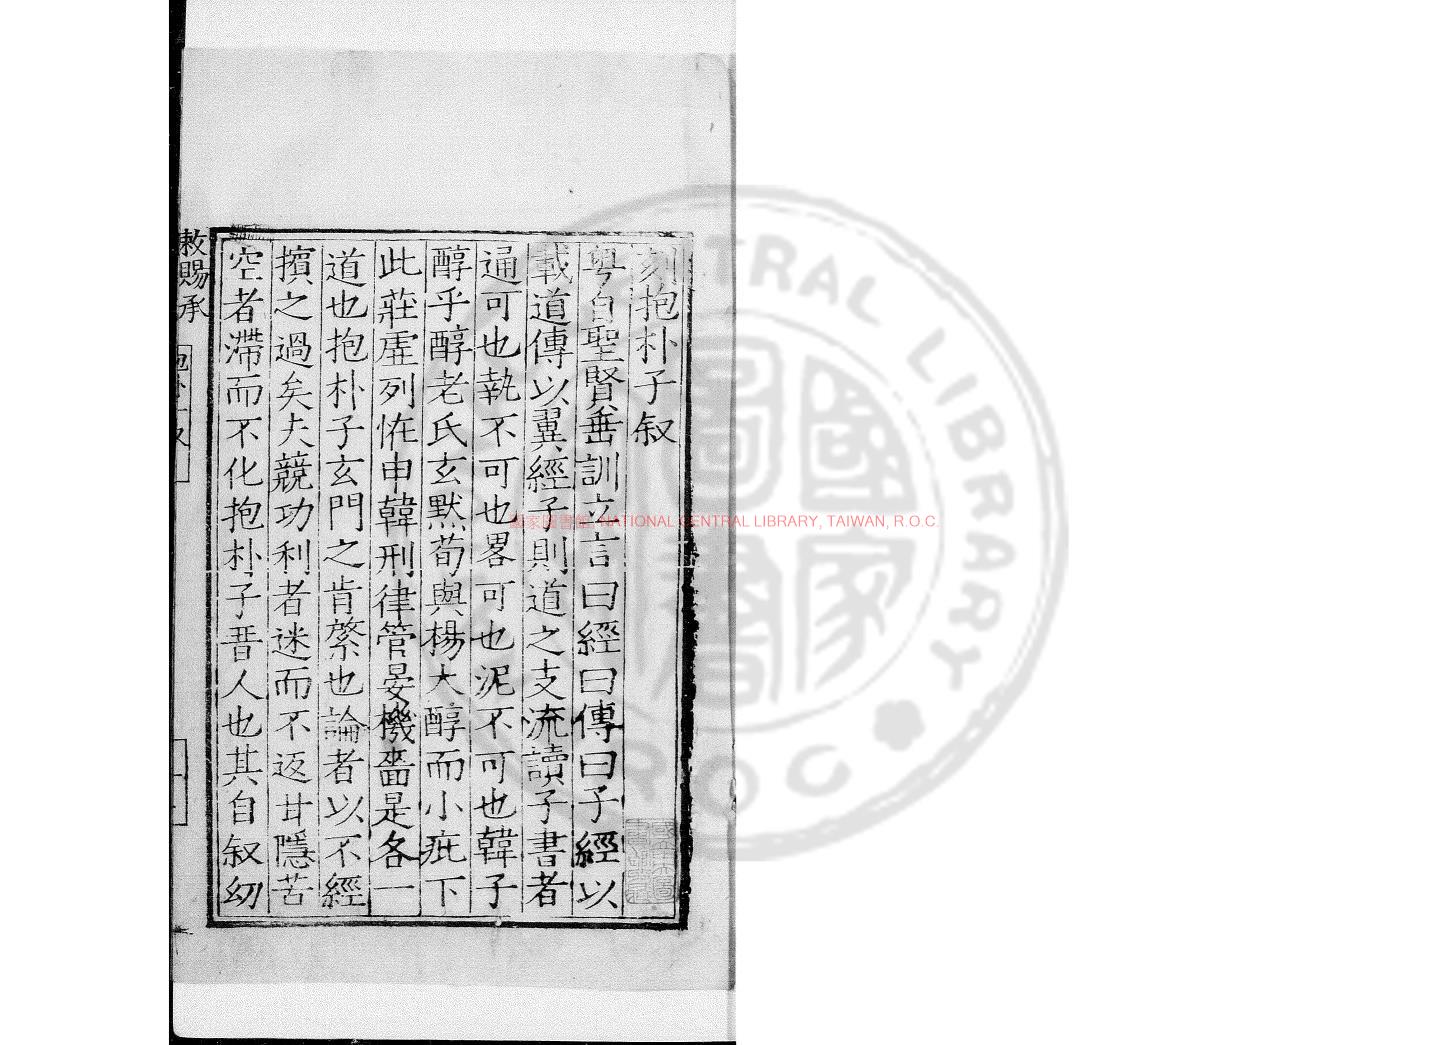 刻抱朴子叙
粤自聖賢垂訓立言曰經曰傳曰子經以
載道傳以翼經子則道之支流讀子書者
通可也執不可也畧可也泥不可也韓子
醇乎醇老氏玄默荀與楊大醇而小疵下
此莊虛列恠申韓刑律管晏機嗇是各一
道也抱朴子玄門之肯綮也論者以不經
擯之過矣夫競功利者迷而不返甘隱苦
空者滯而不化抱朴子晋人也其自叙幼
敕賜承
國家圖書館, NATIONAL CENTRAL LIBRARY, TAIWAN, R.O.C.
CENTRAL LIBRARY
R.O.C
國家圖書